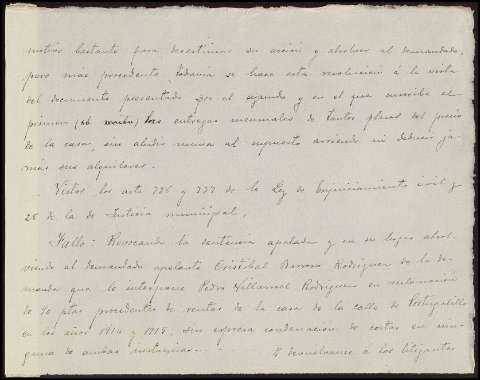 motivo bastante para desestimar su acción y absolver al demandado,
pero mas procedente todavia se hace esta resolución á la vista
del documento presentado por el segundo y en el que suscribe el
primero las entregas mensuales de tantos plazos del precio
de la casa, sin aludir nunca al supuesto arriendo ni deducir ja-
más sus alquileres.
Vistos los arts 726 y 777 de la Ley de Enjuiciamiento civil y
28 de la de Justicia municipal,
Fallo: Revocando la sentencia apelada y en su lugar absol-
viendo al demandado apelante Cristóbal Barroso Rodriguez de la de-
manda que le interpuso Pedro Villarreal Rodriguez en reclamación
de 90 ptas procedentes de rentas de la casa de la calle de Portugalillo
en los años 1914 y 1915, sin expresa condenación de costas en nin-
guna de ambas instancias. Y devuelvanse á los litigantes